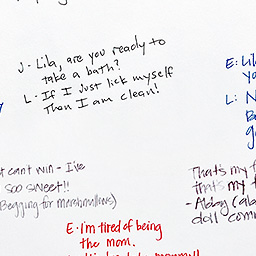 J - Lila, are you ready to
take a bath?
L - If I just lick myself
then I am clean!
E: Lil
yo
L: N
t can't win - I'm
soo sweet!!
(Begging for marshmallows)
That's my f
that's my f
- Abby (ab
doll comm
E - I'm tired of being
the mom.